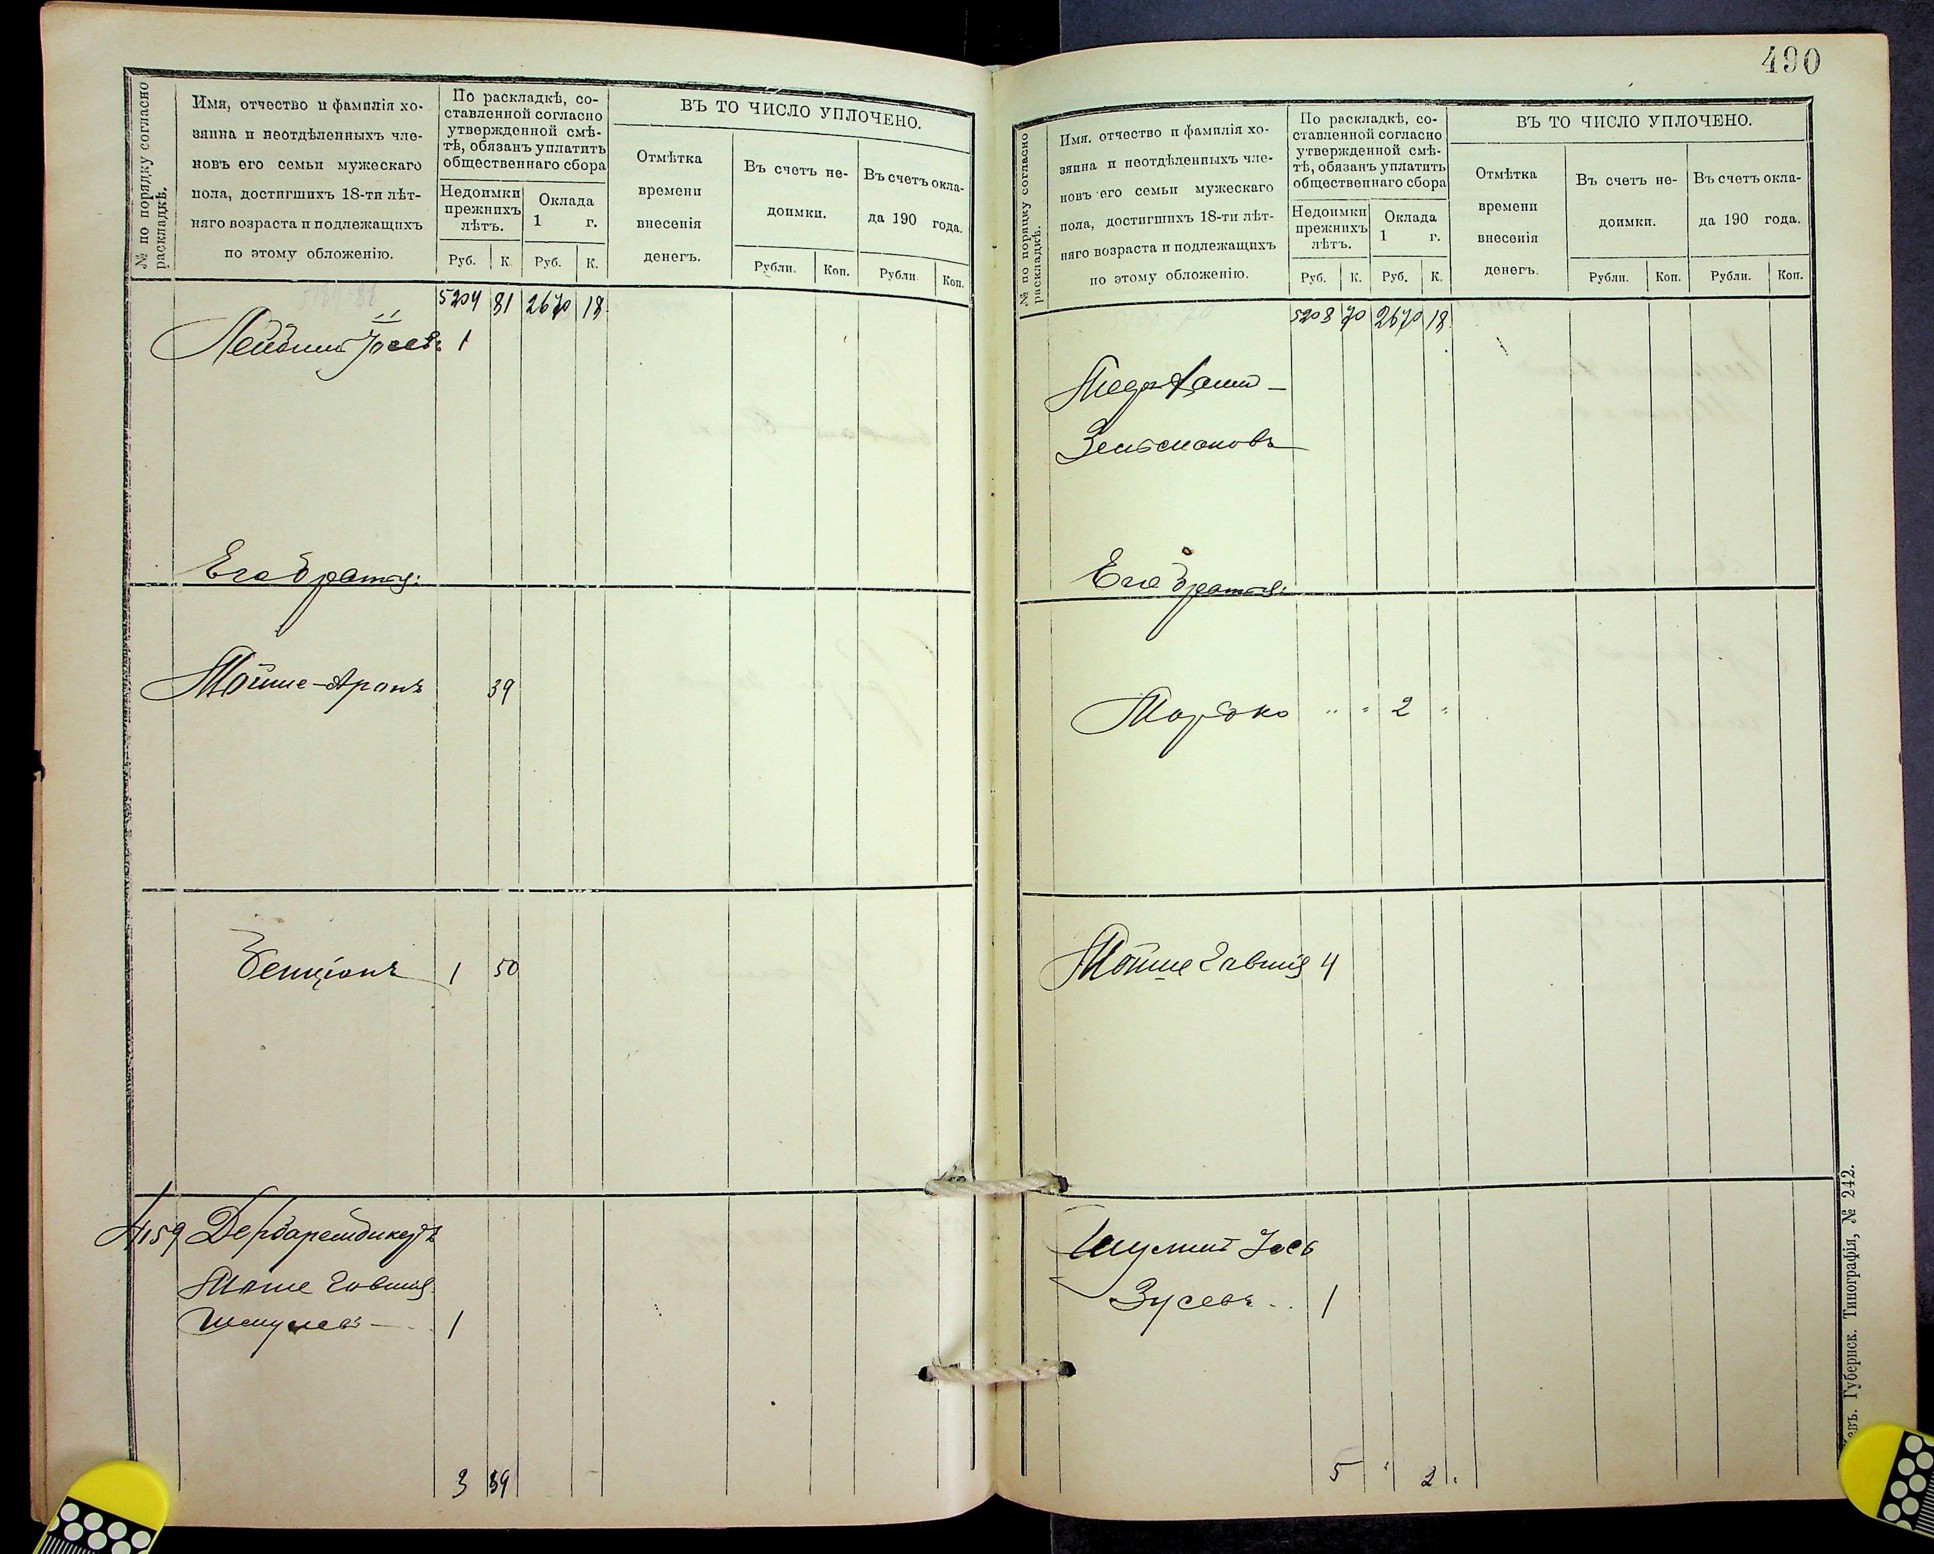 № по порядку согласно
раскладкѣ.
Имя, отчество и фамилія хо-
зяина и неотдѣленныхъ чле-
новъ его семьи мужескаго
пола, достигшихъ 18-ти лѣт-
няго возраста и подлежащихъ
по этому обложенію.
По раскладкѣ, со-
ставленной согласно
утвержденной смѣ-
тѣ, обязанъ уплатить
общественнаго сбора
Недоимки
прежнихъ
лѣтъ.
Оклада
1 г.
Руб. К. Руб. К.
ВЪ ТО ЧИСЛО УПЛОЧЕНО.
Отмѣтка
времени
внесенія
денегъ.
Въ счетъ не-
доимки.
Въ счетъ окла-
да 190 года.
Рубли. Коп. Рубли Коп.
5204 81 2670 18
Іосевъ 1
Его братья:
Мойше-Аронъ 39
Бенціонъ 1 50
4159 Дербаремдикеръ
Моше Говшія
1
3 89
490
№ по порядку согласно
раскладкѣ.
Имя, отчество и фамилія хо-
зяина и неотдѣленныхъ чле-
новъ его семьи мужескаго
пола, достигшихъ 18-ти лѣт-
няго возраста и подлежащихъ
по этому обложенію.
По раскладкѣ, со-
ставленной согласно
утвержденной смѣ-
тѣ, обязанъ уплатить
общественнаго сбора
Недоимки
прежнихъ
лѣтъ.
Оклада
1 г.
Руб. К. Руб. К.
ВЪ ТО ЧИСЛО УПЛОЧЕНО.
Отмѣтка
времени
внесенія
денегъ.
Въ счетъ не-
доимки.
Въ счетъ окла-
да 190 года.
Рубли. Коп. Рубли. Коп.
5208 70 2670 18
Зельмановъ
Его братья:
Мордко " " 2 "
Мойше Говшія 4
Шулимъ Іось
Зусевъ 1
5 " 2 "
Губернск. Типографія, № 242.